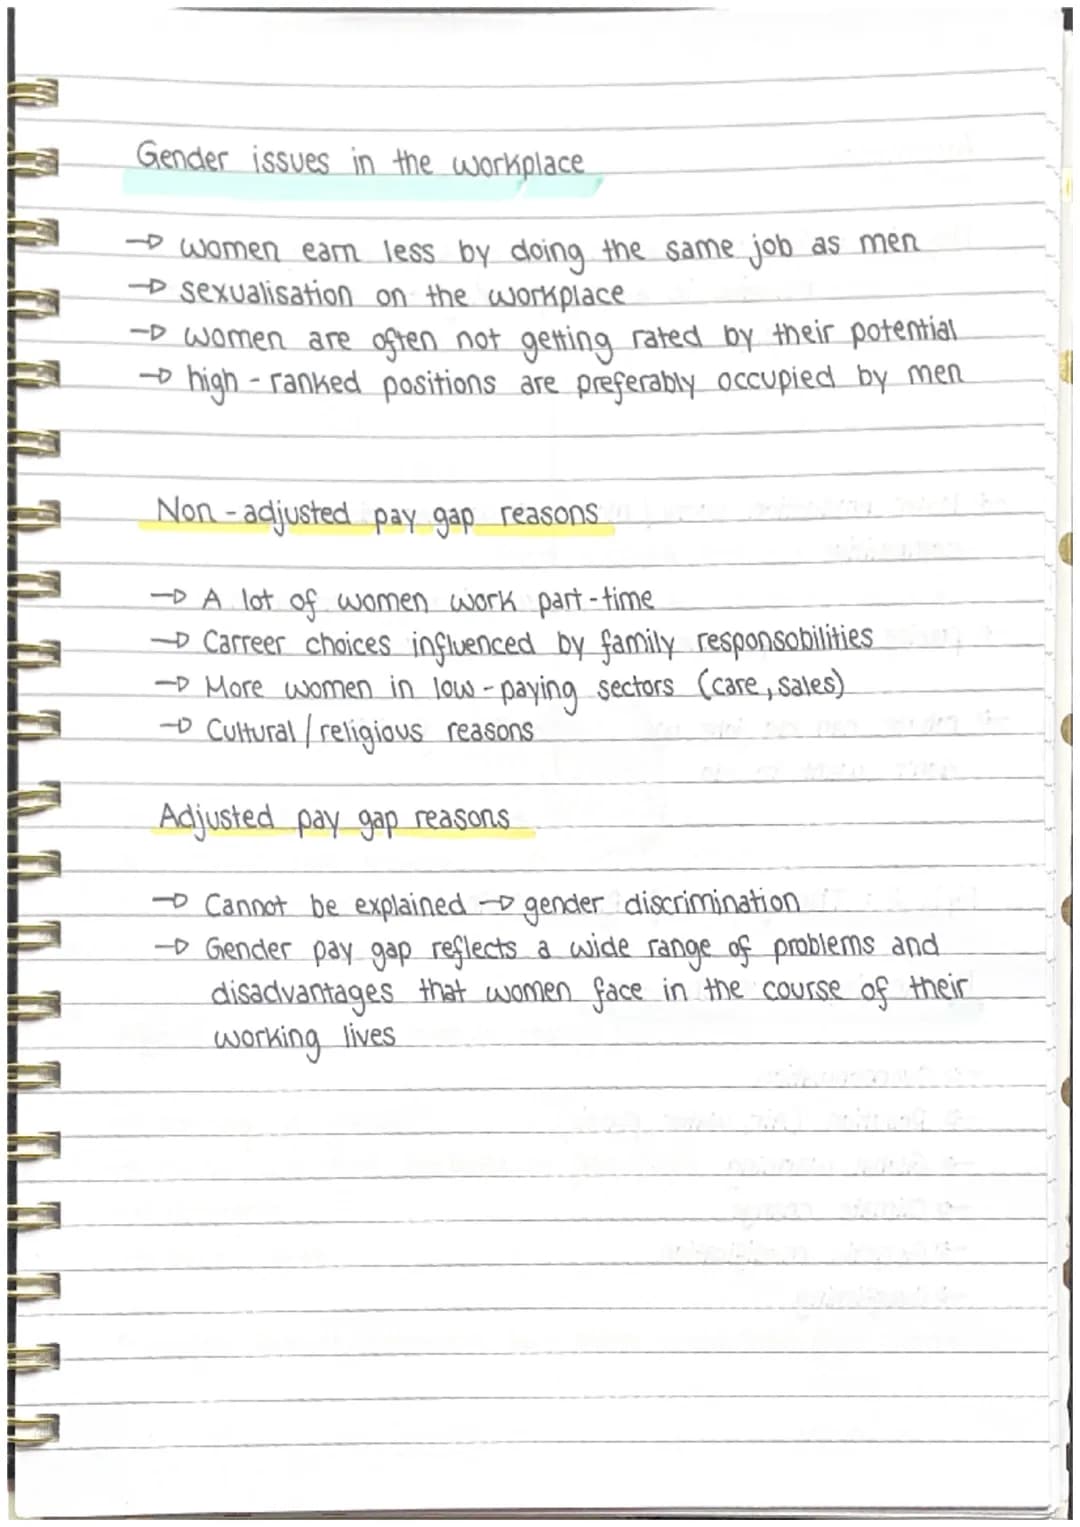 Gender issues in the workplace
→ women earn less by doing the same job as men
→ sexualisation on the workplace
→ women are often not getting rated by their potential
→ high-ranked positions are preferably occupied by men
Non-adjusted pay gap reasons
→ A lot of women work part-time
→ Carreer choices influenced by family responsobilities
→ More women in low-paying sectors (care, sales)
→ Cultural / religious reasons
Adjusted pay gap reasons
→ Cannot be explained → gender discrimination
→ Gender pay gap reflects a wide range of problems and
disadvantages that women face in the course of their
working lives